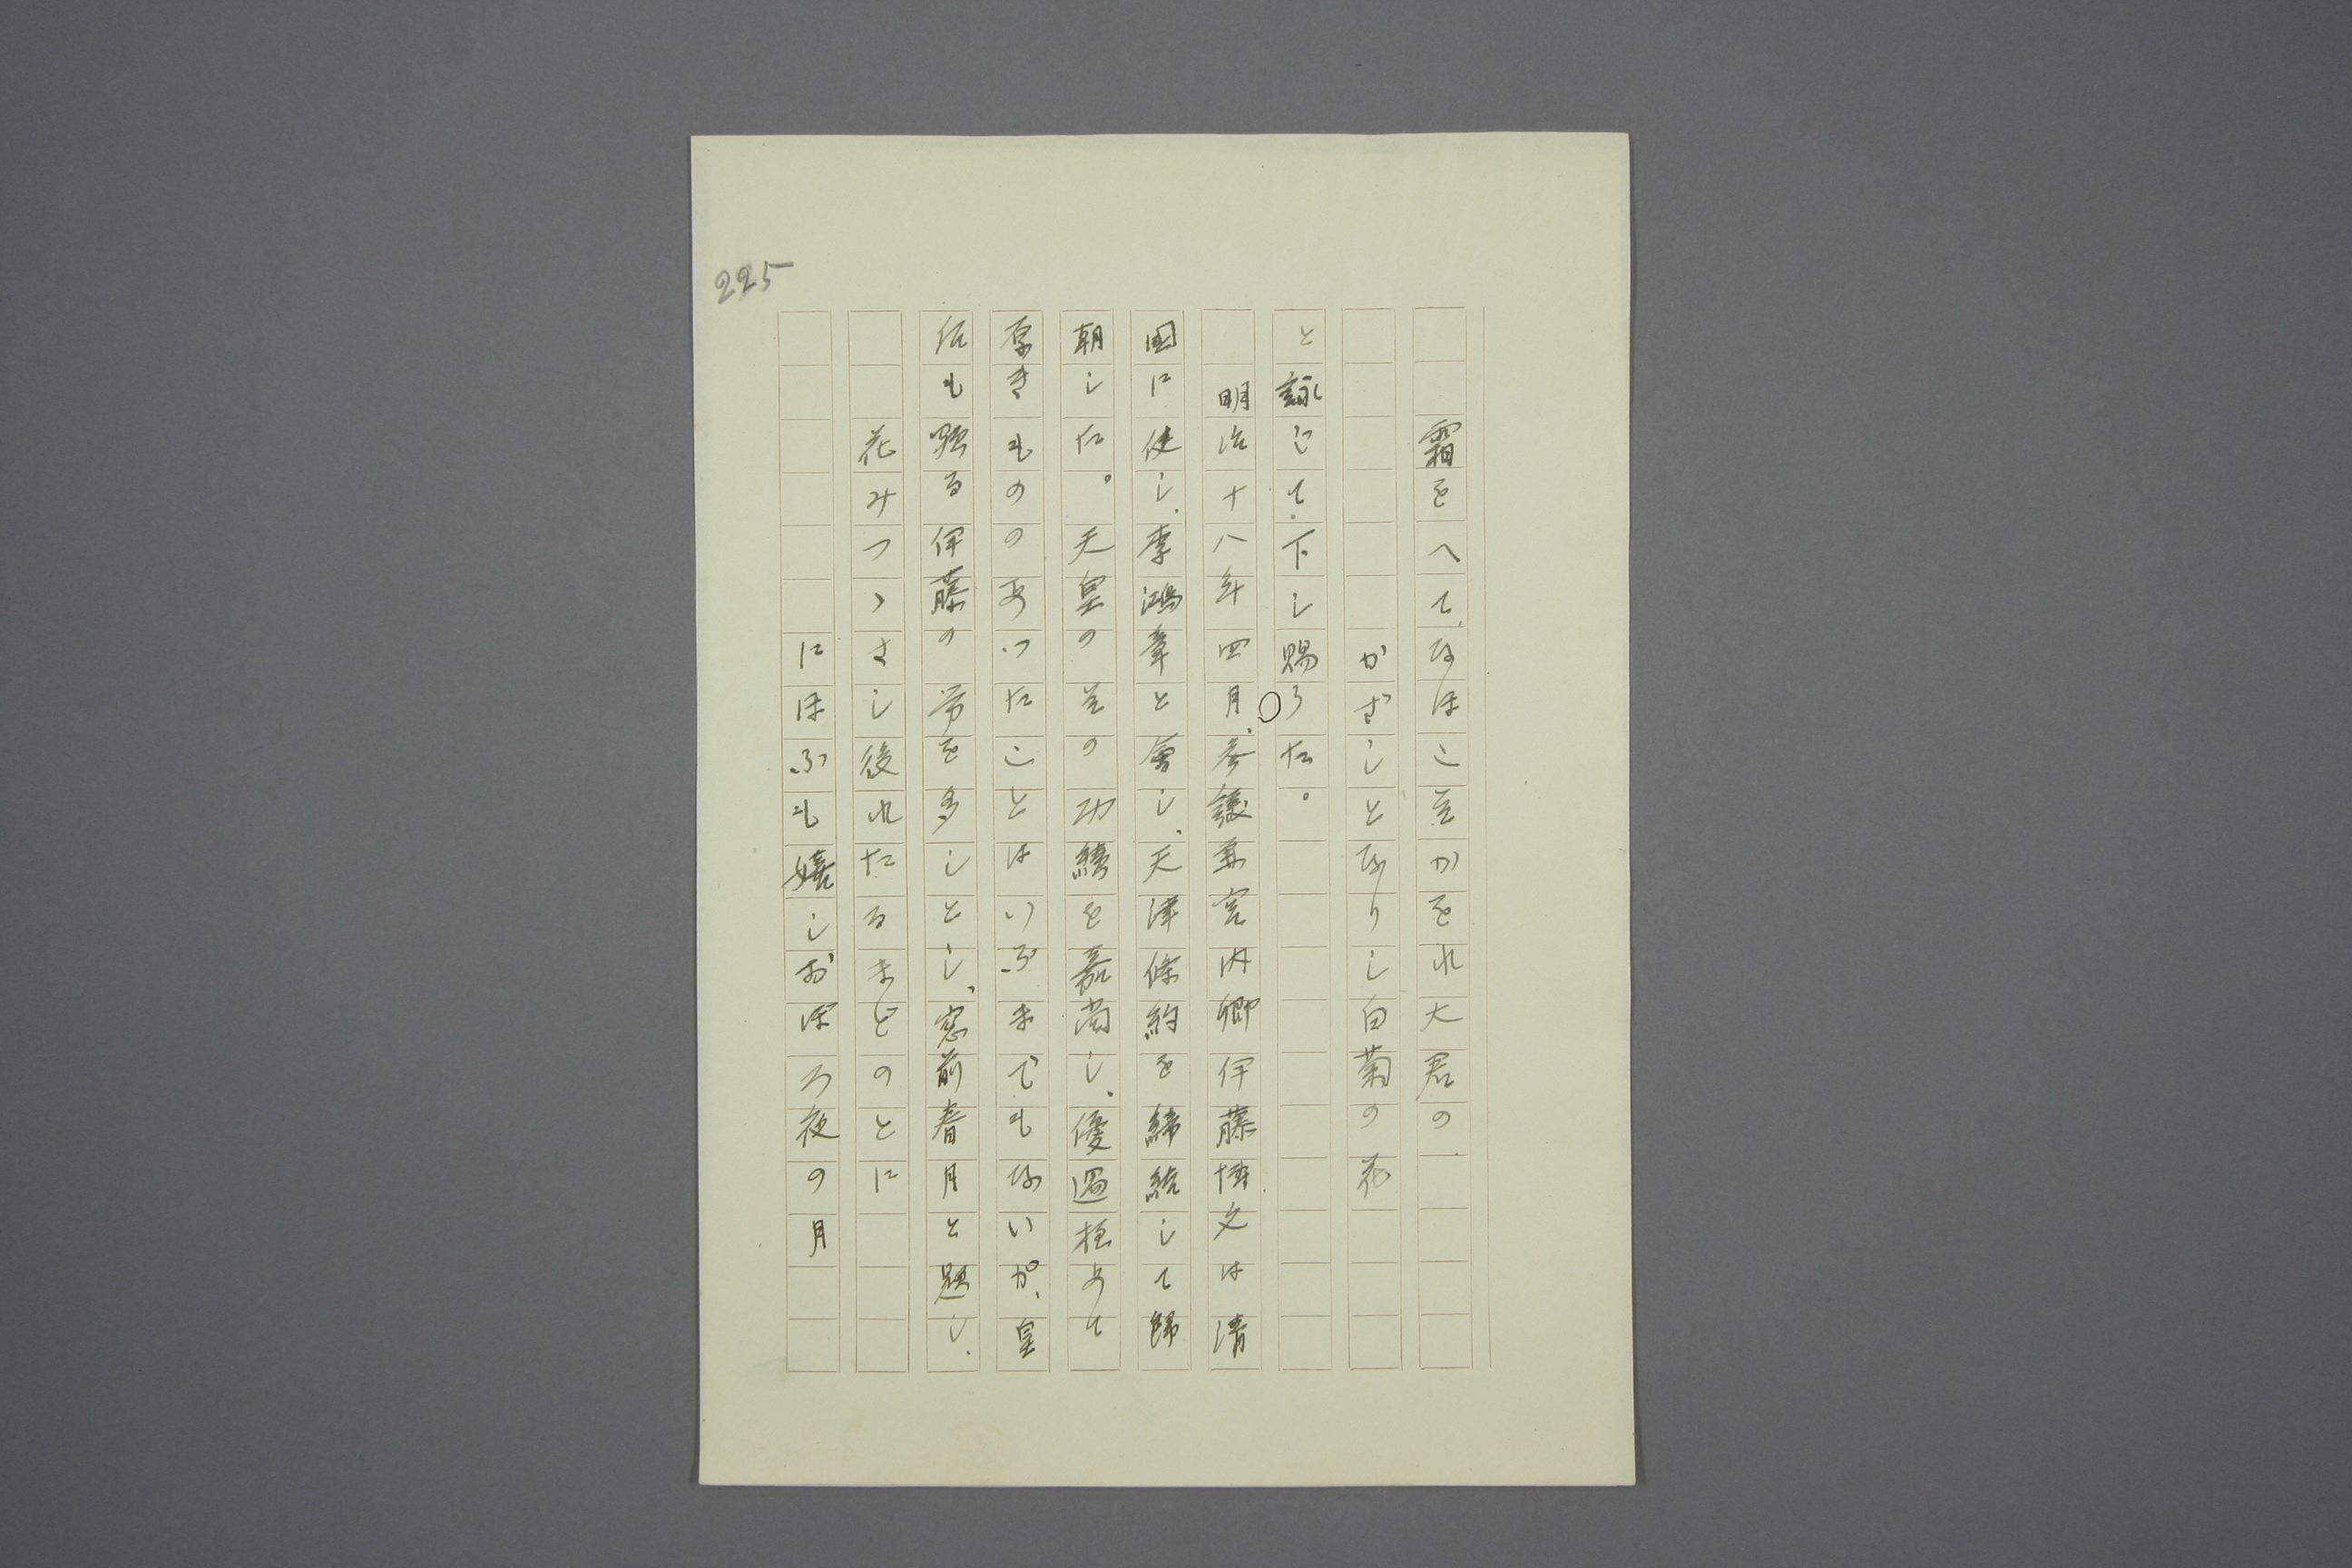 225
霜をへてなほこそかをれ大君の
かざしとなりし白菊の花
と詠じて下し賜うた。
明治十八年四月、参議兼宮内卿伊藤博文は清
国に使し、李鴻章と會し、天津條約を締結して歸
朝した。天皇のその功績を嘉尚し、優遇極めて
厚きもののあつたことはいふまでもないが、皇
后も亦伊藤の労を多しとし、窓前春月と題し、
花みつゝさし後れたるまどのとに
にほふも嬉しおぼろ夜の月